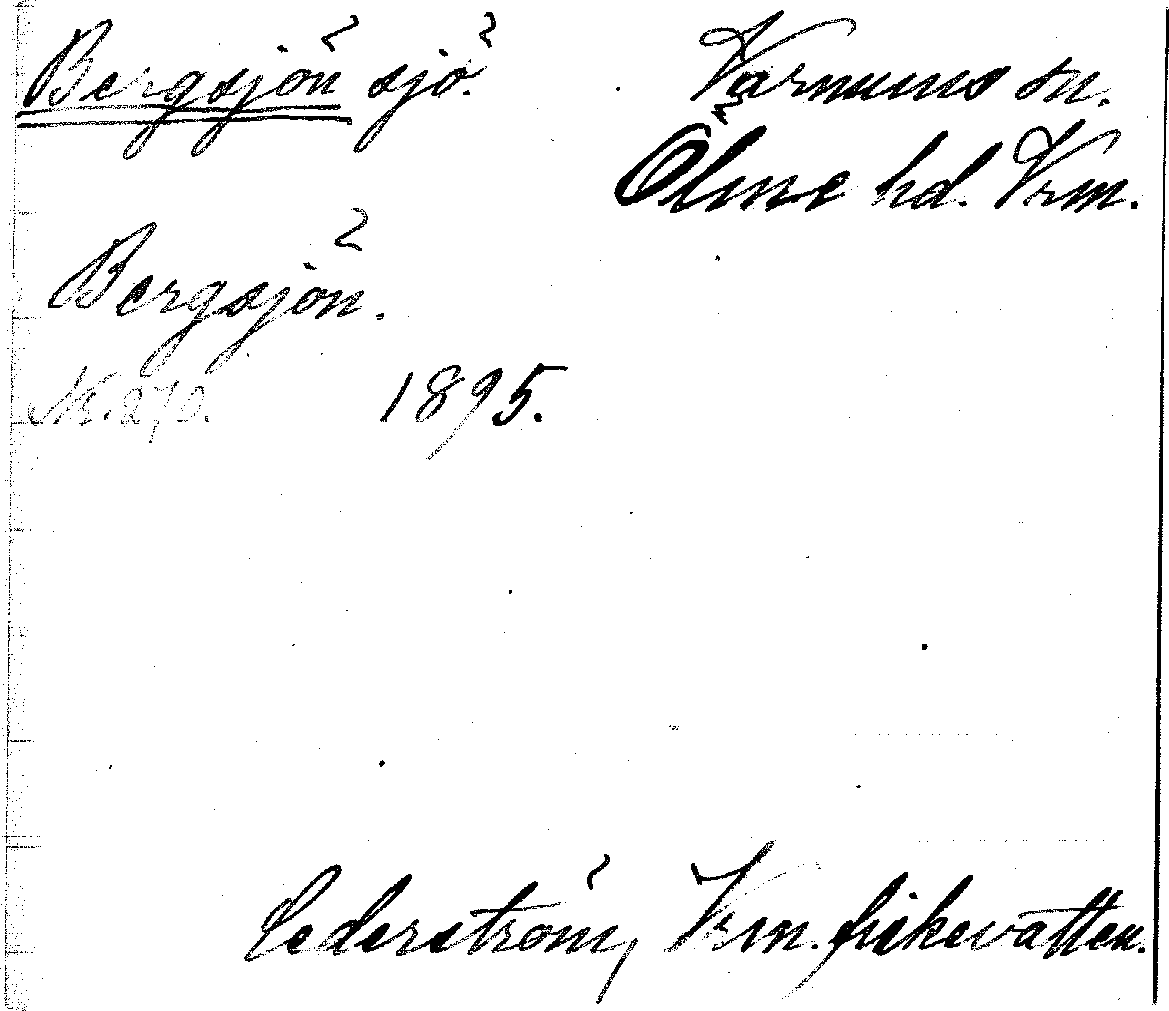 Bergsjön sjö. Varnums sn.
Ölme hd. Vrm.
Bergsjön.
N:r. 270. 1895.
Cederström, Vrm. fiskevatten.